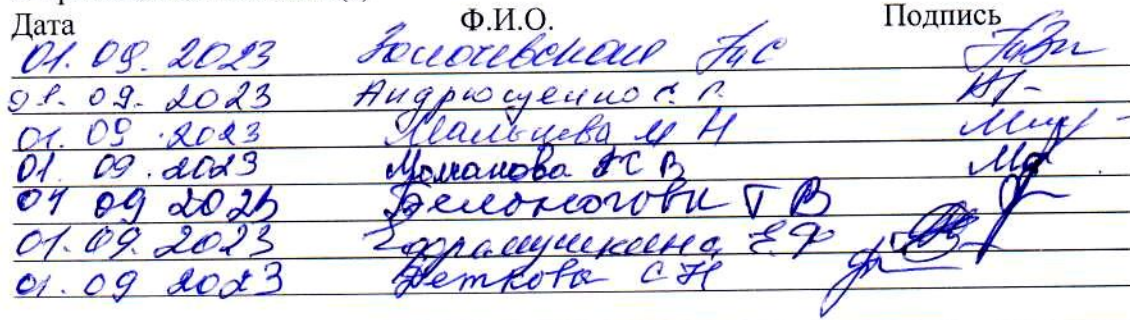 Дата Ф.И.О. Подпись
01.09.2023 Золочевская
01.09.2023 Андрющенко
01.09.2023 Мальцева М Н
01 09.2023 Молчанова В
01 09 2023 Белоногова Т В
01.09.2023 Е.Ф
01.09 2023 Веткова С Н